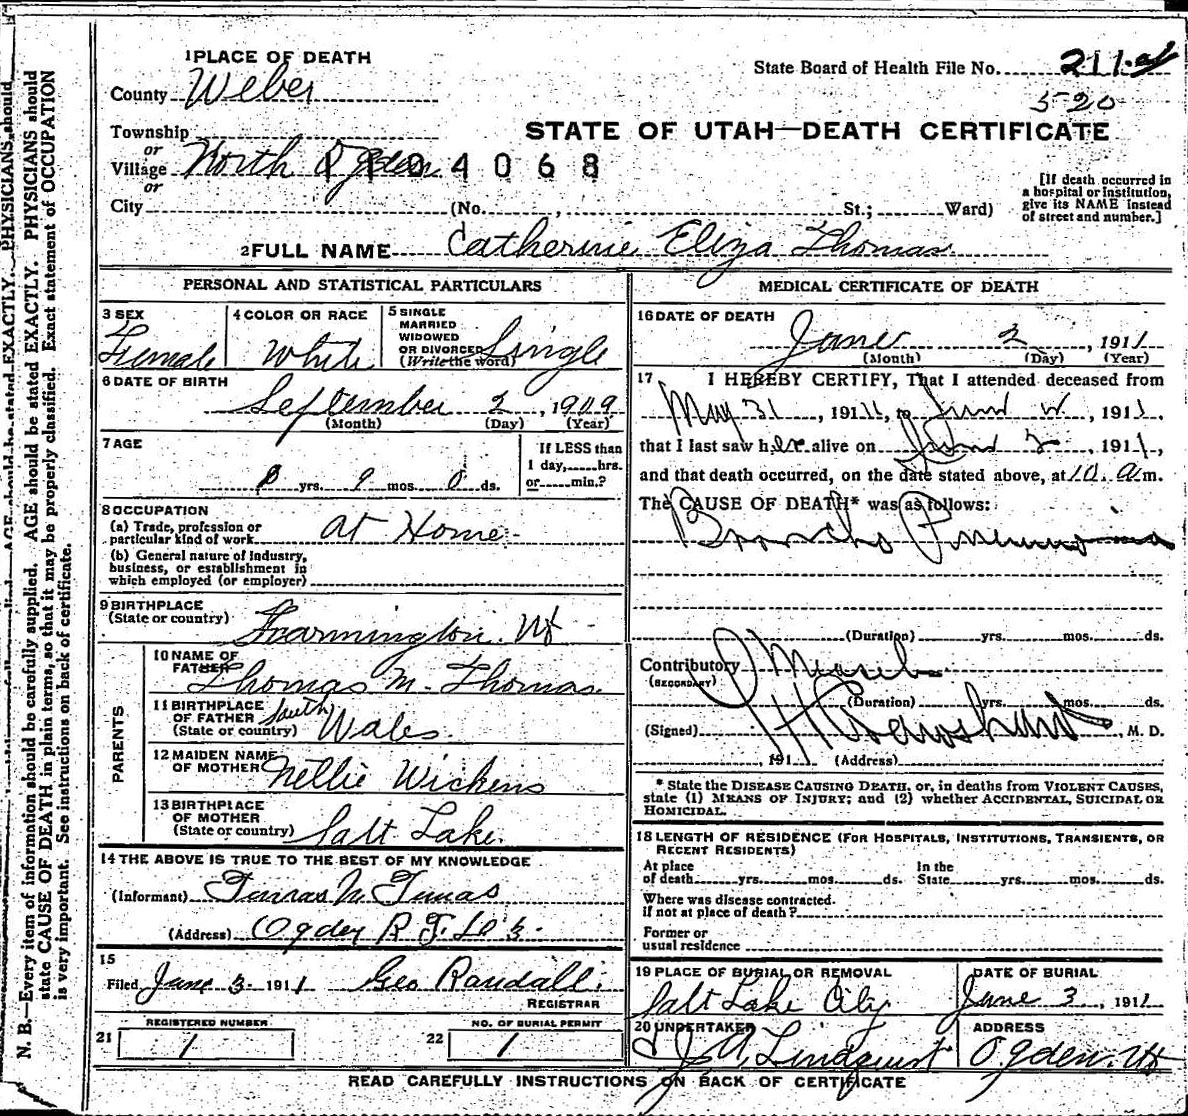 1 PLACE OF DEATH
State Board of Health File No. 211-a
520
County Weber
STATE OF UTAH—DEATH CERTIFICATE
Township
or
Village North Ogden
1104068
or
City (No. , St.; Ward)
[If death occurred in
a hospital or institution,
give its NAME instead
of street and number.]
2 FULL NAME Catherine Eliza Thomas
PERSONAL AND STATISTICAL PARTICULARS
3 SEX
Female
4 COLOR OR RACE
White
5 SINGLE
MARRIED
WIDOWED
OR DIVORCED
(Write the word)
Single
6 DATE OF BIRTH
September 2, 1909
(Month) (Day) (Year)
7 AGE
yrs. 9 mos. 0 ds.
If LESS than
1 day, hrs.
or min.?
8 OCCUPATION
(a) Trade, profession or
particular kind of work At Home
(b) General nature of industry,
business, or establishment in
which employed (or employer)
9 BIRTHPLACE
(State or country) Farmington Ut
PARENTS
10 NAME OF
FATHER Thomas M. Thomas
11 BIRTHPLACE
OF FATHER
(State or country) South Wales
12 MAIDEN NAME
OF MOTHER Nellie Wickens
13 BIRTHPLACE
OF MOTHER
(State or country) Salt Lake
14 THE ABOVE IS TRUE TO THE BEST OF MY KNOWLEDGE
(Informant)
(Address) Ogden R.F.D. 3
15
Filed June 3 1911 Geo Randall
REGISTRAR
21 REGISTERED NUMBER
1
22 NO. OF BURIAL PERMIT
1
MEDICAL CERTIFICATE OF DEATH
16 DATE OF DEATH
June 2, 1911
(Month) (Day) (Year)
17 I HEREBY CERTIFY, That I attended deceased from
May 31, 1911, to June, 1911,
that I last saw her alive on June 2, 1911,
and that death occurred, on the date stated above, at 10 a m.
The CAUSE OF DEATH* was as follows:
Broncho Pneumonia
(Duration) yrs. mos. ds.
Contributory Measels
(SECONDARY)
(Duration) yrs. mos. ds.
(Signed) , M. D.
, 191 (Address)
* State the DISEASE CAUSING DEATH, or, in deaths from VIOLENT CAUSES,
state (1) MEANS OF INJURY; and (2) whether ACCIDENTAL, SUICIDAL OR
HOMICIDAL.
18 LENGTH OF RESIDENCE (FOR HOSPITALS, INSTITUTIONS, TRANSIENTS, OR
RECENT RESIDENTS)
At place
of death yrs. mos. ds.
In the
State yrs. mos. ds.
Where was disease contracted.
if not at place of death?
Former or
usual residence
19 PLACE OF BURIAL OR REMOVAL
Salt Lake City
DATE OF BURIAL
June 3, 1911
20 UNDERTAKER
Lindquist
ADDRESS
Ogden Ut
READ CAREFULLY INSTRUCTIONS ON BACK OF CERTIFICATE
N. B.—Every item of information should be carefully supplied. AGE should be stated EXACTLY. PHYSICIANS should
state CAUSE OF DEATH in plain terms, so that it may be properly classified. Exact statement of OCCUPATION
is very important. See instructions on back of certificate.